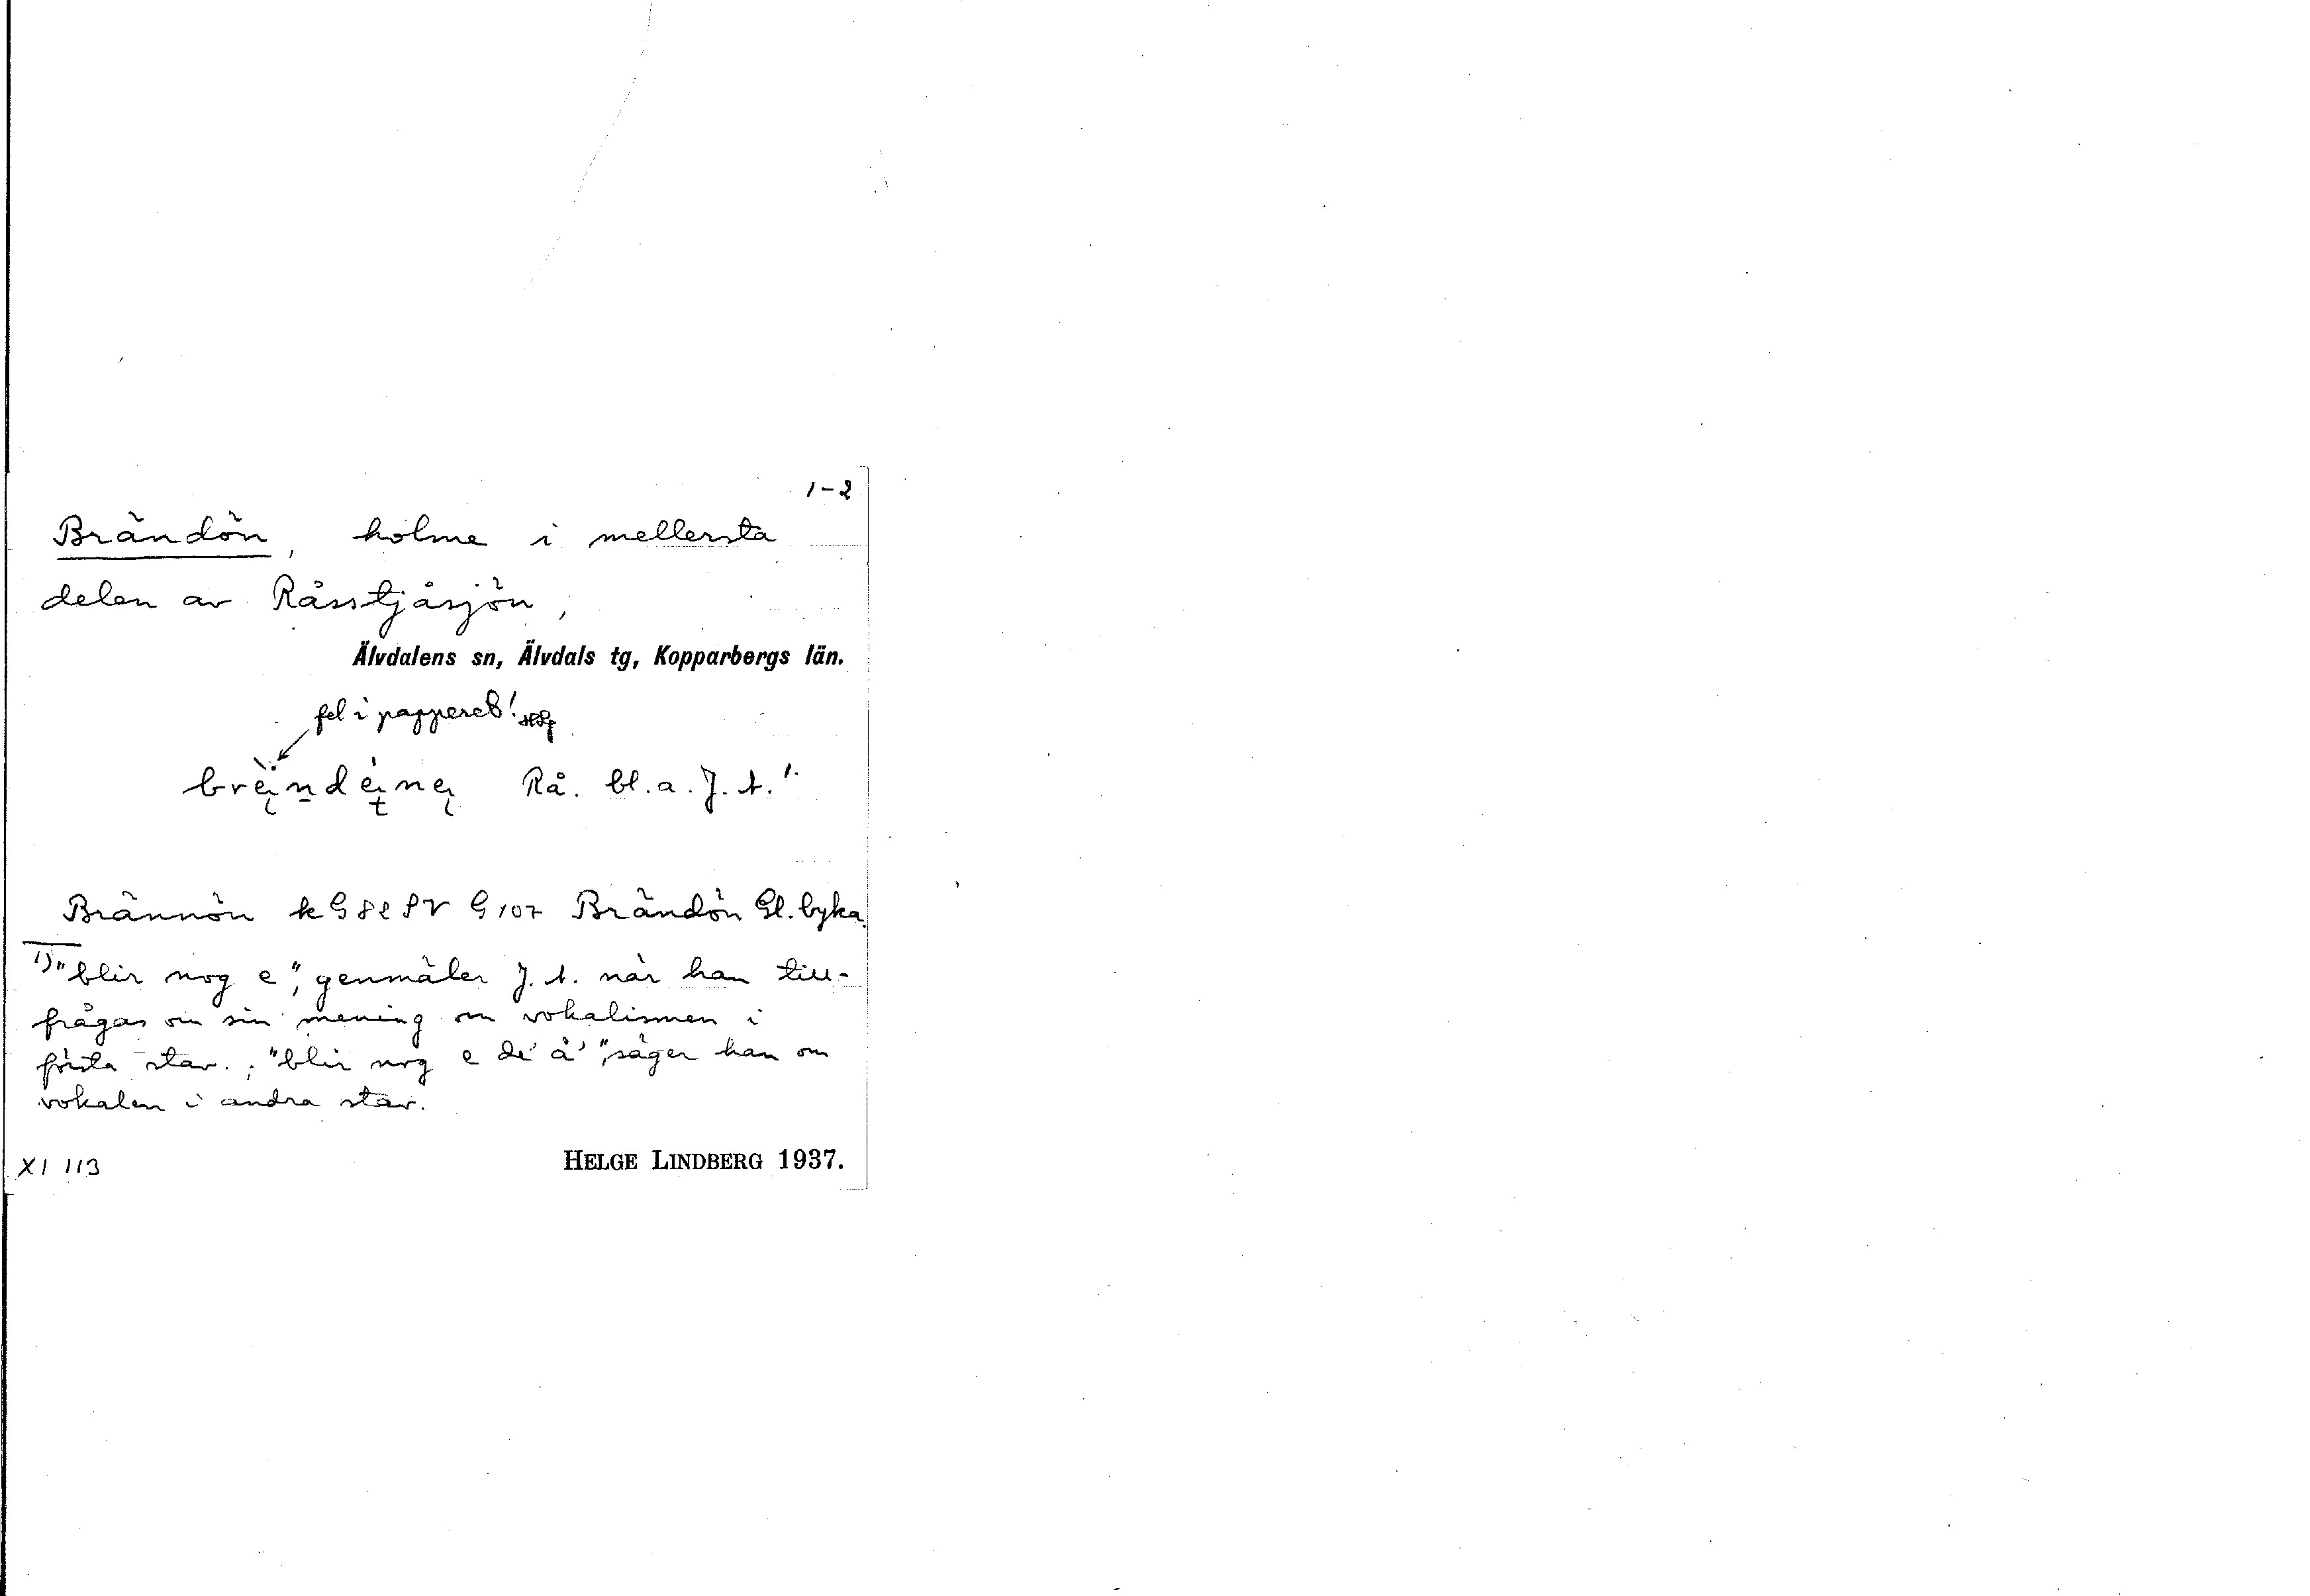 1-2
Brändön, holme i mellersta
delen av Råsstjåsjön,
Älvdalens sn, Älvdals tg, Kopparbergs län.
fel i papperet!
brändene Rå. bl.a. J. A. 1.
Brännön k G 82 SV G 107 Brändön Gl. byka.
1) "blir nog e", genmäler J. A. när han till-
frågas om sin mening om vokalismen i
första stav.; "blir nog e de' å'", säger han om
vokalen i andra stav.
XI 113
HELGE LINDBERG 1937.